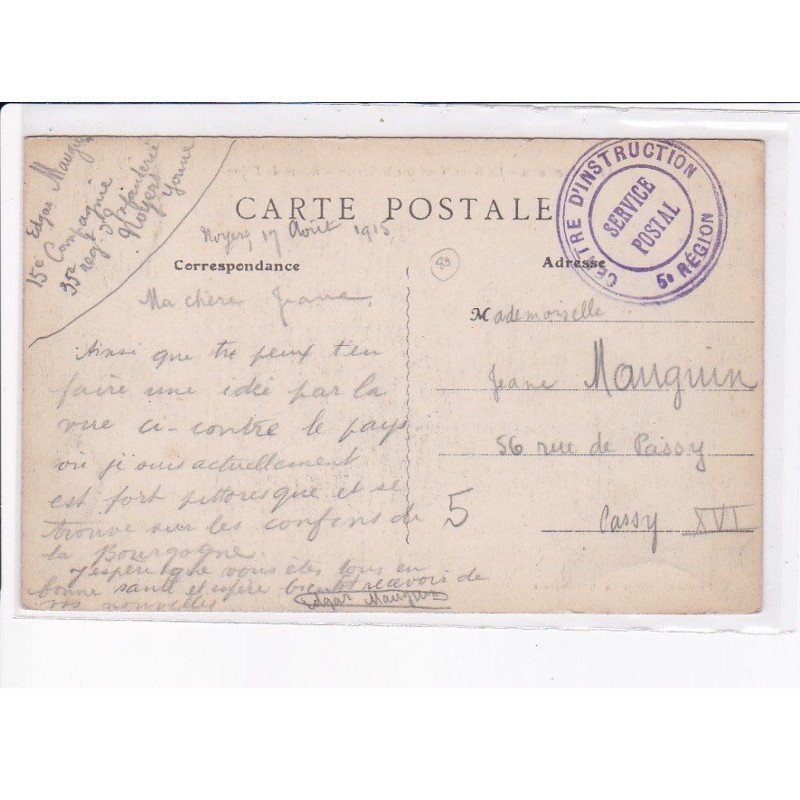 Edgar Mauguin
15e Compagnie
35e rég. d'Infanterie
Noyers
Yonne
CARTE POSTALE
CENTRE D'INSTRUCTION
SERVICE
POSTAL
5e RÉGION
Noyers, 17 Août 1915
Correspondance
89
Adresse
Ma chère Jeane,
Ainsi que tu peux t'en
faire une idé par la
vue ci-contre le pays
où je suis actuellement
est fort pittoresque et se
trouve sur les confins de
la Bourgogne.
J'espère que vous êtes tous en
bonne santé et espère bientôt recevoir de
vos nouvelles
Edgar Mauguin
Mademoiselle
Jeane Mauguin
56 rue de Passy
5
Passy XVI